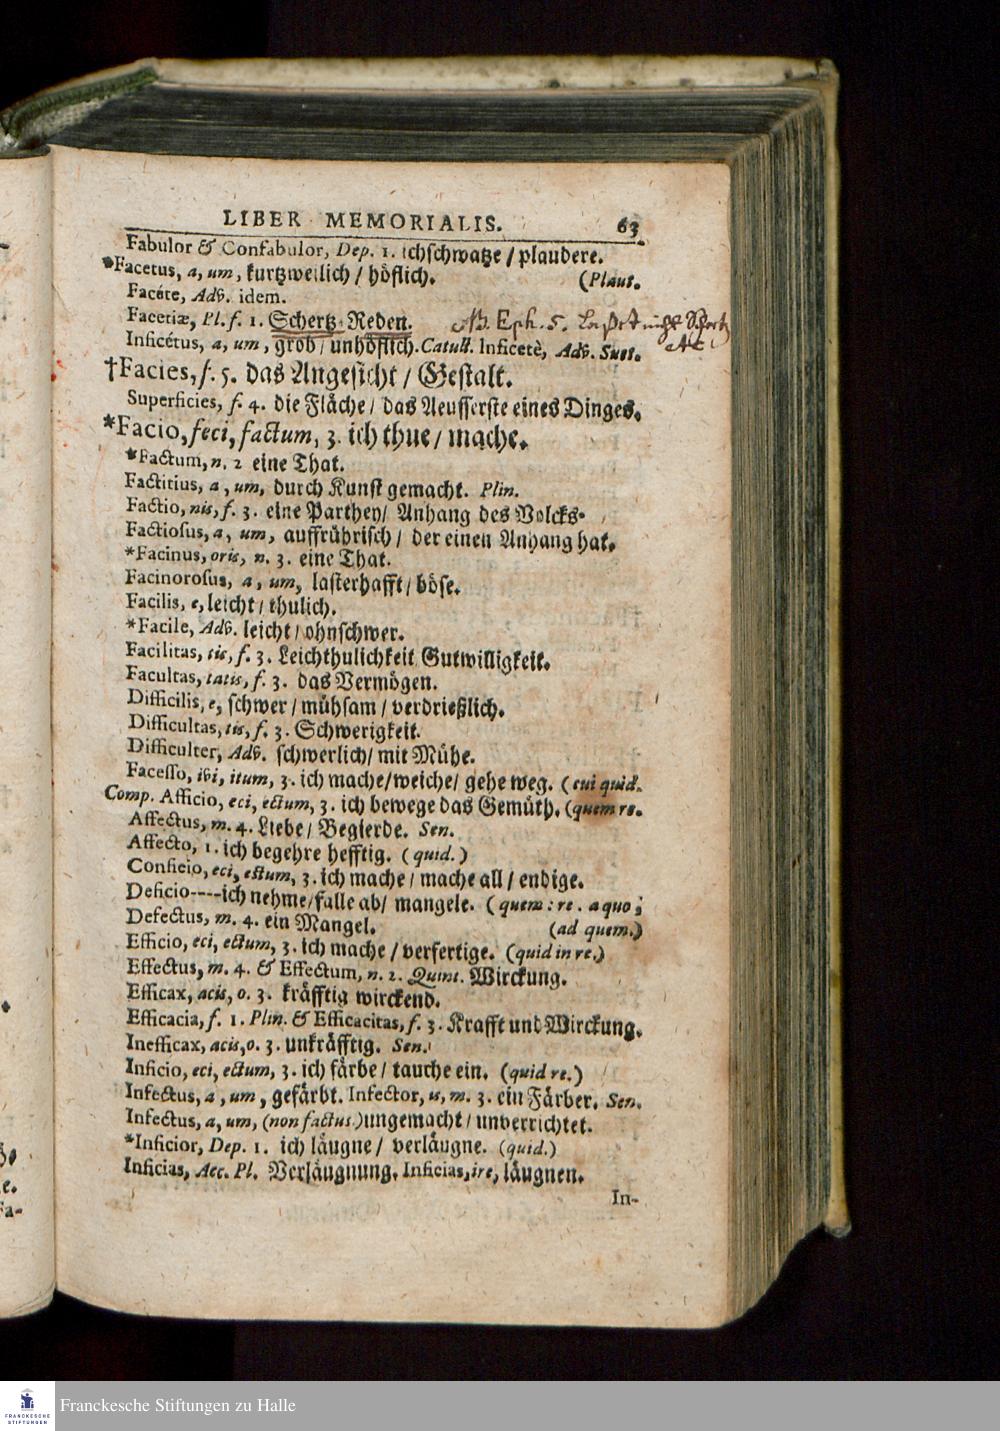 LIBER MEMORIALIS. 63
Fabulor & Confabulor, Dep. 1. ich schwatze / plaudere.
*Facetus, a, um, kurtzweilich / höflich. (Plaut.
Facéte, Adv. idem.
Facetiæ, Pl. f. 1. Schertz-Reden. NB. Eph. 5. Lasset nicht Schertz
Inficétus, a, um, grob / unhöflich. Catull. Inficetè, Adv. Suet.
†Facies, f. 5. das Angesicht / Gestalt.
Superficies, f. 4. die Fläche / das Aeusserste eines Dinges.
*Facio, feci, factum, 3. ich thue / mache.
*Factum, n. 2 eine That.
Factitius, a, um, durch Kunst gemacht. Plin.
Factio, nis, f. 3. eine Parthey / Anhang des Volcks.
Factiosus, a, um, auffrührisch / der einen Anhang hat.
*Facinus, oris, n. 3. eine That.
Facinorosus, a, um, lasterhafft / böse.
Facilis, e, leicht / thulich.
*Facile, Adv. leicht / ohnschwer.
Facilitas, tis, f. 3. Leichthulichkeit Gutwilligkeit.
Facultas, tatis, f. 3. das Vermögen.
Difficilis, e, schwer / mühsam / verdrießlich.
Difficultas, tis, f. 3. Schwerigkeit.
Difficulter, Adv. schwerlich / mit Mühe.
Facesso, ivi, itum, 3. ich mache / weiche / gehe weg. (cui quid.
Comp. Afficio, eci, ectum, 3. ich bewege das Gemüth. (quem re.
Affectus, m. 4. Liebe / Begierde. Sen.
Affecto, 1. ich begehre hefftig. (quid.)
Conficio, eci, ectum, 3. ich mache / mache all / endige.
Deficio----ich nehme / falle ab / mangele. (quem: re. a quo;
Defectus, m. 4. ein Mangel. (ad quem.)
Efficio, eci, ectum, 3. ich mache / verfertige. (quid in re.)
Effectus, m. 4. & Effectum, n. 2. Quint. Wirckung.
Efficax, acis, o. 3. kräfftig wirckend.
Efficacia, f. 1. Plin. & Efficacitas, f. 3. Krafft und Wirckung.
Inefficax, acis, o. 3. unkräfftig. Sen.
Inficio, eci, ectum, 3. ich färbe / tauche ein. (quid re.)
Infectus, a, um, gefärbt. Infector, is, m. 3. ein Färber. Sen.
Infectus, a, um, (non factus.) ungemacht / unverrichtet.
*Inficior, Dep. 1. ich läugne / verläugne. (quid.)
Inficias, Acc. Pl. Verläugnung. Inficias, ire, läugnen.
In-
Franckesche Stiftungen zu Halle
FRANCKESCHE
STIFTUNGEN